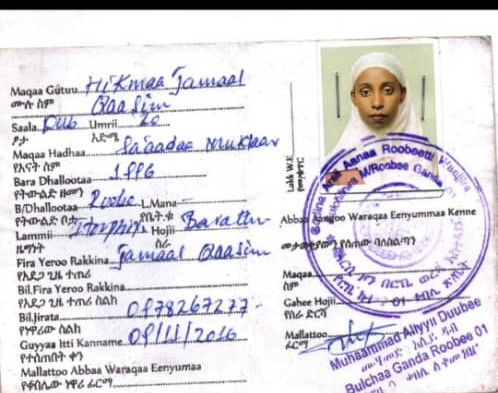 Maqaa Gutuu Hikmaa Jamaal
ሙሉ ስም Qaasim
Saala Dub Umrii 20
ፆታ ዕድሜ
Maqaa Hadhaa Sa'aadaa Muktaar
የእናት ስም
Bara Dhallootaa 1996
የትውልድ ዘመን
B/Dhallootaa Roobe L.Mana
የትውልድ ቦታ የቤት.ቁ
Lammii Hojii Barattu
ዜግነት ስራ
Fira Yeroo Rakkina Jamaal Qaasim
የአደጋ ጊዜ ተጠሪ
Bil.Fira Yeroo Rakkina
የአደጋ ጊዜ ተጠሪ ስልክ
Bil.Jirata 0978267277
የነዋሪው ስልክ
Guyyaa Itti Kanname 09/11/2016
የተሰጠበት ቀን
Mallattoo Abbaa Waraqaa Eenyumaa
የተቀባዩ ነዋሪ ፊርማ
Lakk W.E
Abbaa Waraqaa Eenyummaa Kenne
መታወቂያውን የሰጠው ባለስልጣን
Maqaa
ስም
Gahee Hojii
የስራ ድርሻ
Mallattoo
ፊርማ
Aanaa Roobeetti
M/Roobee Ganda
01
Muhaammad Aliyyii Duubee
Bulchaa Ganda Roobee 01